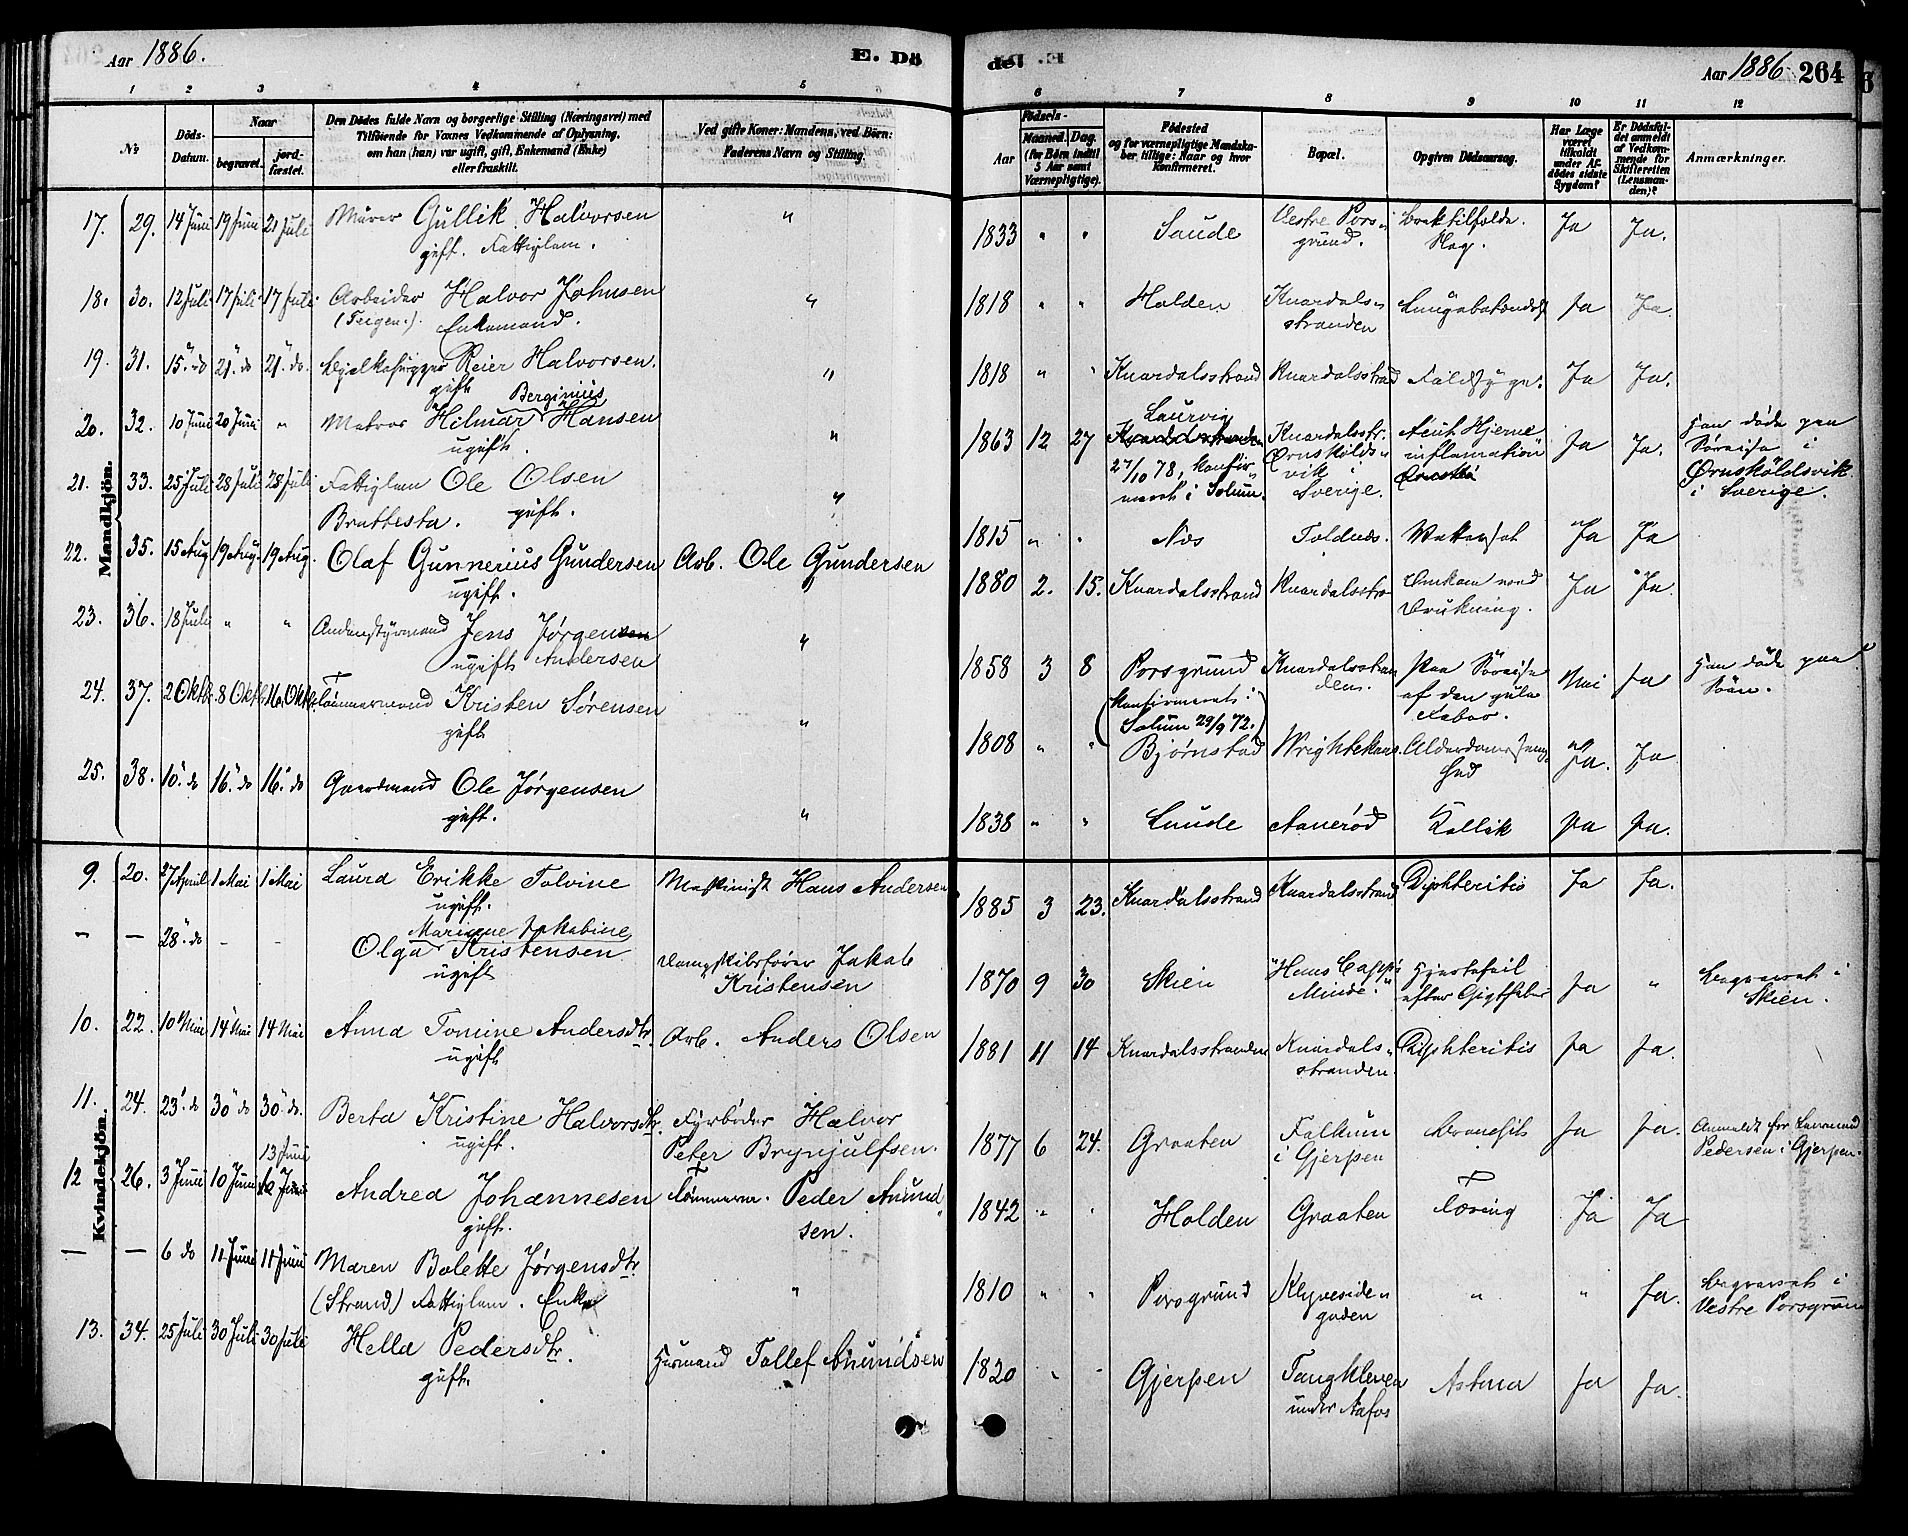 Aar 1886.
E. Dö
1 2 3 4 5
No
Döds-Datum.
Naar
begravet.
jordfæstet.
Den Dödes fulde Navn og borgerlige Stilling (Næringsvei) med
Tilföiende for Voxnes Vedkommende af Oplysning,
om han (hun) var ugift, gift, Enkemand (Enke)
eller fraskilt.
Ved gifte Koner: Mandens, ved Börn:
Faderens Navn og Stilling.
Mandkjön.
17. 29. 14 Juni 19 Juni 21 Juli Murer Gullik Halvorsen "
gift. Fattiglem.
18. 30. 12 Juli 17 Juli 17 Juli Arbeider Halvor Johnsen "
(Teigen.) Enkemand.
19. 31. 15" do 21" do 21" do Reier Halvorsen. "
gift
Berginius
20. 32. 10 Juni 20 Juni " Matros Hilmar Hansen "
ugift.
21. 33. 25 Juli 28 Juli 28 Juli Fattiglem Ole Olsen "
Brattesta. gift.
22. 35. 15 Aug 19 Aug. 19 Aug. Olaf Gunnerius Gundersen Arb. Ole Gundersen
ugift.
23. 36. 18 Juli " " Andenstyrmand Jens Jørgensen "
ugift Andersen
24. 37. 2 Oktb. 8 Oktb. 16 Oktb. Tømmermand Kristen Sørensen "
gift
25. 38. 10" do 16" do 16" do Gaardmand Ole Jørgensen "
gift.
Kvindekjön.
9. 20. 27 April 1 Mai 1 Mai Laura Erikke Tolvine Maskinist Hans Andersen
ugift.
Mariane Jakobine
— — 28" do - - Olga Kristensen Dampskibsfører Jakob
ugift Kristensen
10. 22. 10 Mai 14 Mai 14 Mai Anna Tomine Andersdtr. Arb. Anders Olsen
ugift
11. 24. 23" do 30" do 30" do. Berta Kristine Halvorsdtr. Fyrbøder Halvor
ugift. Peter Brynjulfsen.
13 Juni
12 26. 3 Juni 10 Juni Andrea Johannesen Tømmerm. Peder Amund
gift. sen.
— — 6 do 11 Juni 11 Juni Maren Bolette Jørgensdtr. "
(Strand) Fattiglem. Enke
13. 34. 25 Juli 30 Juli 30 Juli Hella Pedersdtr. Husmand Tollef Amundsen
gift.
del
Aar 1886 264
6 7 8 9 10 11 12
Födsels-
Aar
Maaned. Dag.
(for Börn indtil
5 Aar samt
Værnepligtige).
Födested
og for værnepligtige Mandska-
ber tillige: Naar og hvor
Konfirmeret.
Bopæl.
Opgiven Dödsaarsag.
Har Læge
været
tilkaldt
under Af-
dödes sidste
Sygdom?
Er Dödsfal-
det anmeldt
af Vedkom-
mende for
Skifteretten
(Lensman-
den)?
Anmærkninger.
1833 " " Saude Vestre Pors- Ja Ja.
grund.
1818 " " Holden Knardals- Lungebetændelse Ja Ja.
stranden
1818 " " Knardalsstrand Knardalsstrand Ja Ja.
Laurvig
1863 12 27 Knardalsstr. Acut Hjerne Ja Ja. Han døde paa
27/10 78, konfir- Ørnskölds- inflamation Søreise i
meret i Solum. vik i Ørnsköldsvik
Sverige. i Sverige.
1815 " " Næs Toldnæs. Vattersot Ja Ja
1880 2. 15. Knardalsstrand Knardalsstr. Omkom ved Ja Ja.
Drukning.
1858 3 8 Porsgrund Knardalsstran Paa Søreise Nei Ja Han døde paa
(konfirmeret i den. af den gule Søen.
Solum 29/9 72.) Feber.
1808 " " Bjørnstad Ja. Ja
1838 " " Saude Aanerød Kollik Ja Ja.
1885 3 23. Knardalsstrand Knardalsstrand Diphteritis Ja Ja.
1870 9 30 Skien "Hans Cappe Hjertefeil Ja " begravet i
Minde." efter Gigtfeber Skien.
1881 11 14 Knardalsstranden Knardals- Diphteritis Ja Ja.
stranden.
1877 6 24. Graaten Falkum Ja Ja. Anmeldt for Lensmand
i Gjerpen Pedersen i Gjerpen.
1842 " " Holden Graaten Tæring Ja Ja
1810 " " Porsgrund Klyveside- " " Ja. begravet i
gaden Vestre Porsgrund
1820 " " Gjerpen Tangkleven Astma Ja Ja.
under Aafos